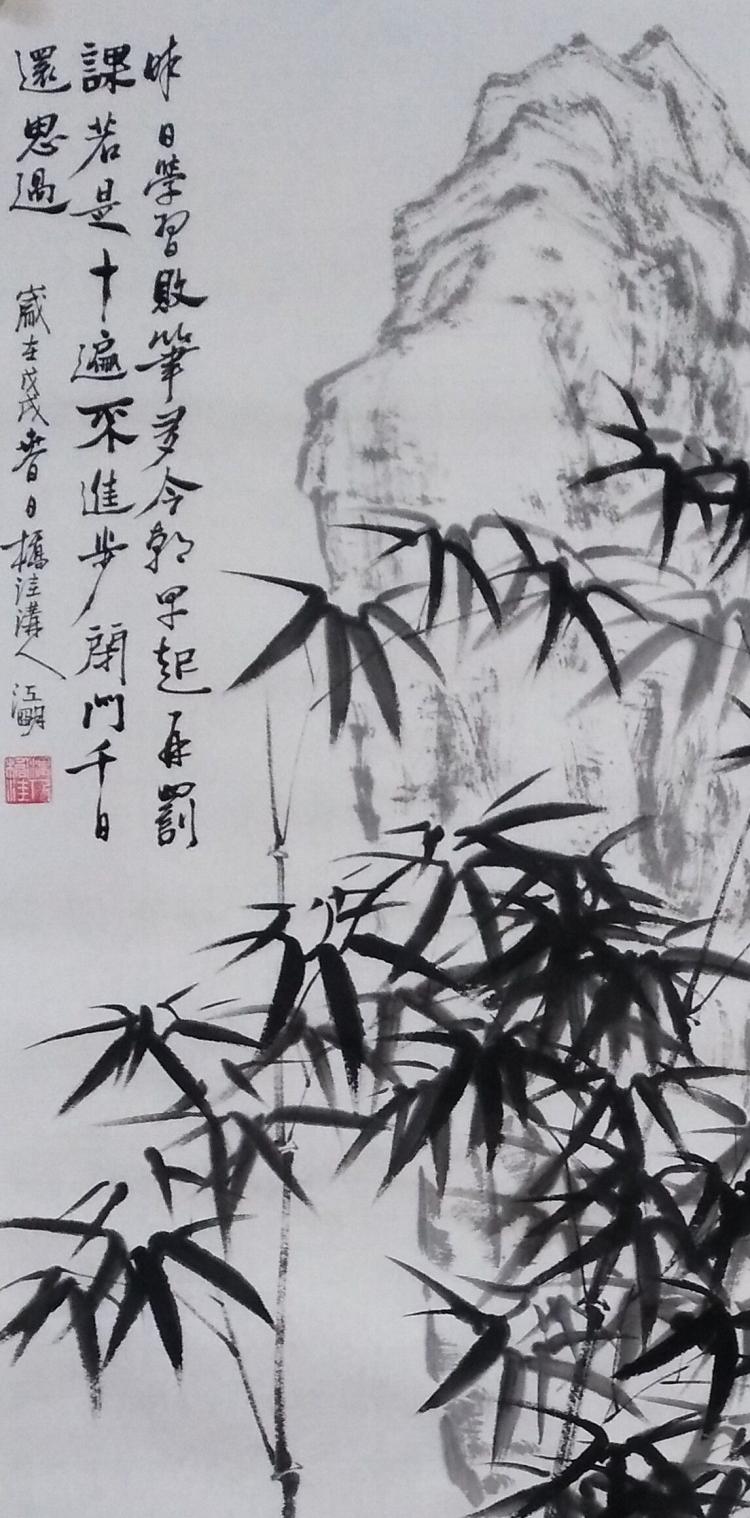 昨日學習敗筆多今朝早起再罰
課若是十遍不進步閉門千日
還思過
歲在戊戌春日橋洼溝人江